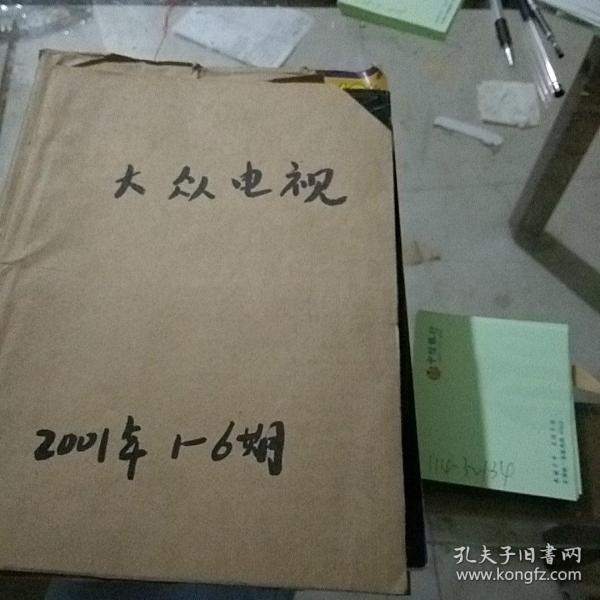 大众电视
2001年 1-6期
中信银行
孔夫子旧書网
www.kongfz.com